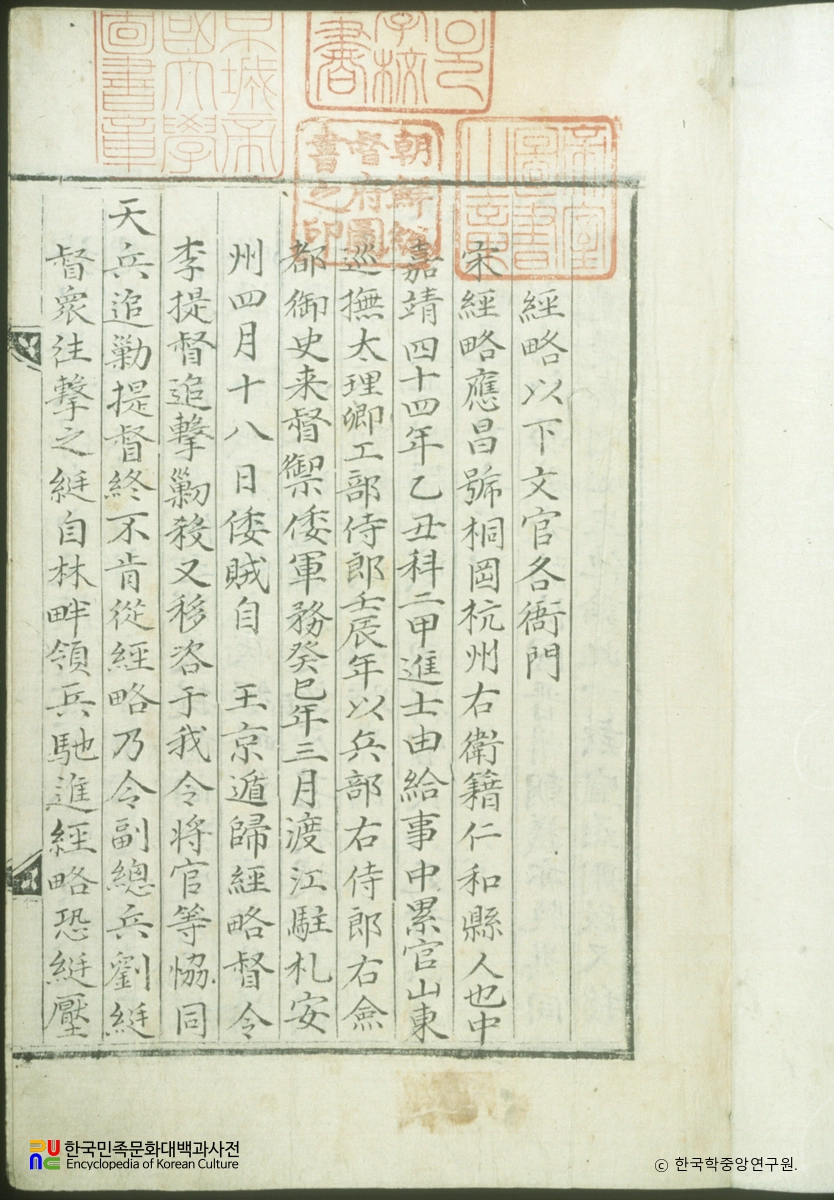 經略以下文官各衙門
宋經略應昌號桐岡杭州右衛籍仁和縣人也中
嘉靖四十四年乙丑科二甲進士由給事中累官山東
巡撫大理卿工部侍郎壬辰年以兵部右侍郎右僉
都御史来督禦倭軍務癸巳年三月渡江駐札安
州四月十八日倭賊自 王京遁歸經略督令
李提督追擊勦殺又移咨于我令將官等恊同
天兵追勦提督終不肯從經略乃令副總兵劉綎
督衆往擊之綎自林畔領兵馳進經略恐綎壓
帝室圖書之章
朝鮮總督府圖書之印
京城帝國大學圖書章
學校
書
한국민족문화대백과사전
Encyclopedia of Korean Culture
ⓒ 한국학중앙연구원.